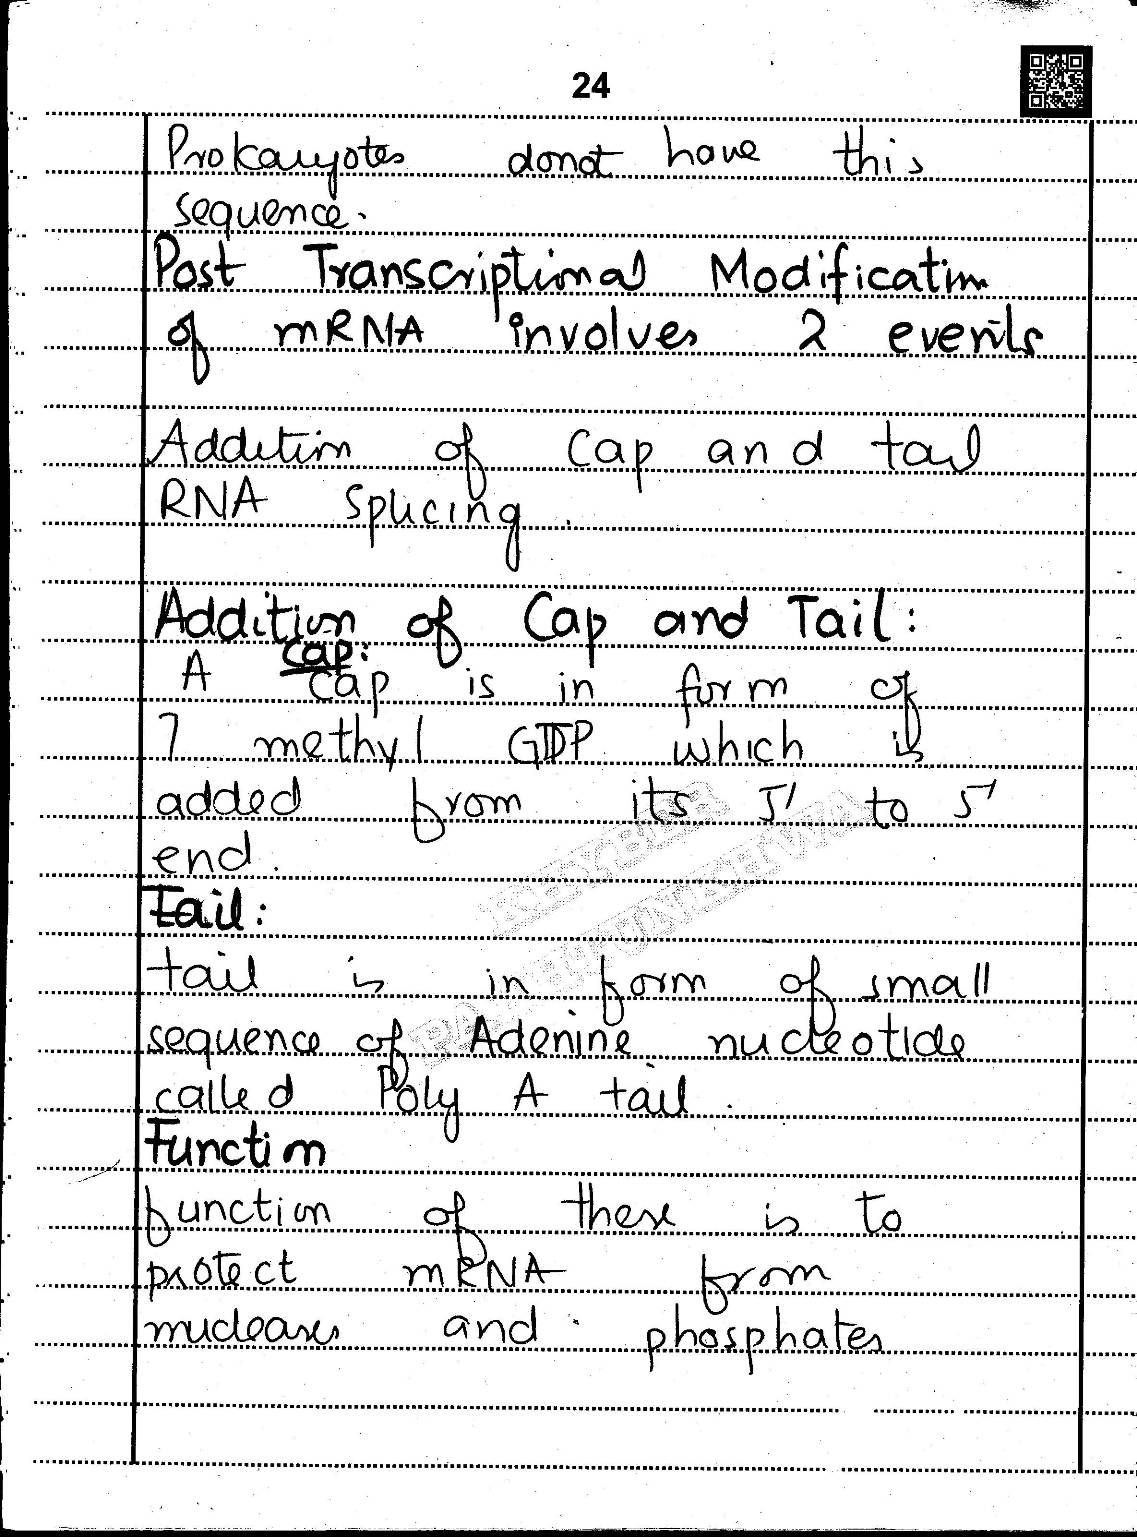 24
Prokaryotes donot have this
sequence.
Post Transcriptional Modification
of mRNA involves 2 events
Addition of Cap and tail
RNA Splicing.
Addition of Cap and Tail:
Cap:
A Cap is in form of
7 methyl GDP which is
added from its 5' to 5'
end.
Tail:
tail is in form of small
sequence of Adenine nucleotide
called Poly A tail.
Function
function of these is to
protect mRNA from
nucleases and phosphates
KHYBER
PAKHTUNKHWA